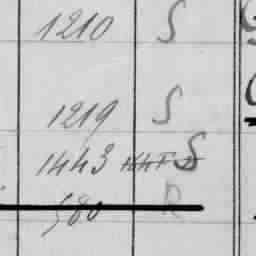 1210 S
1219 S
1443 S
580 R